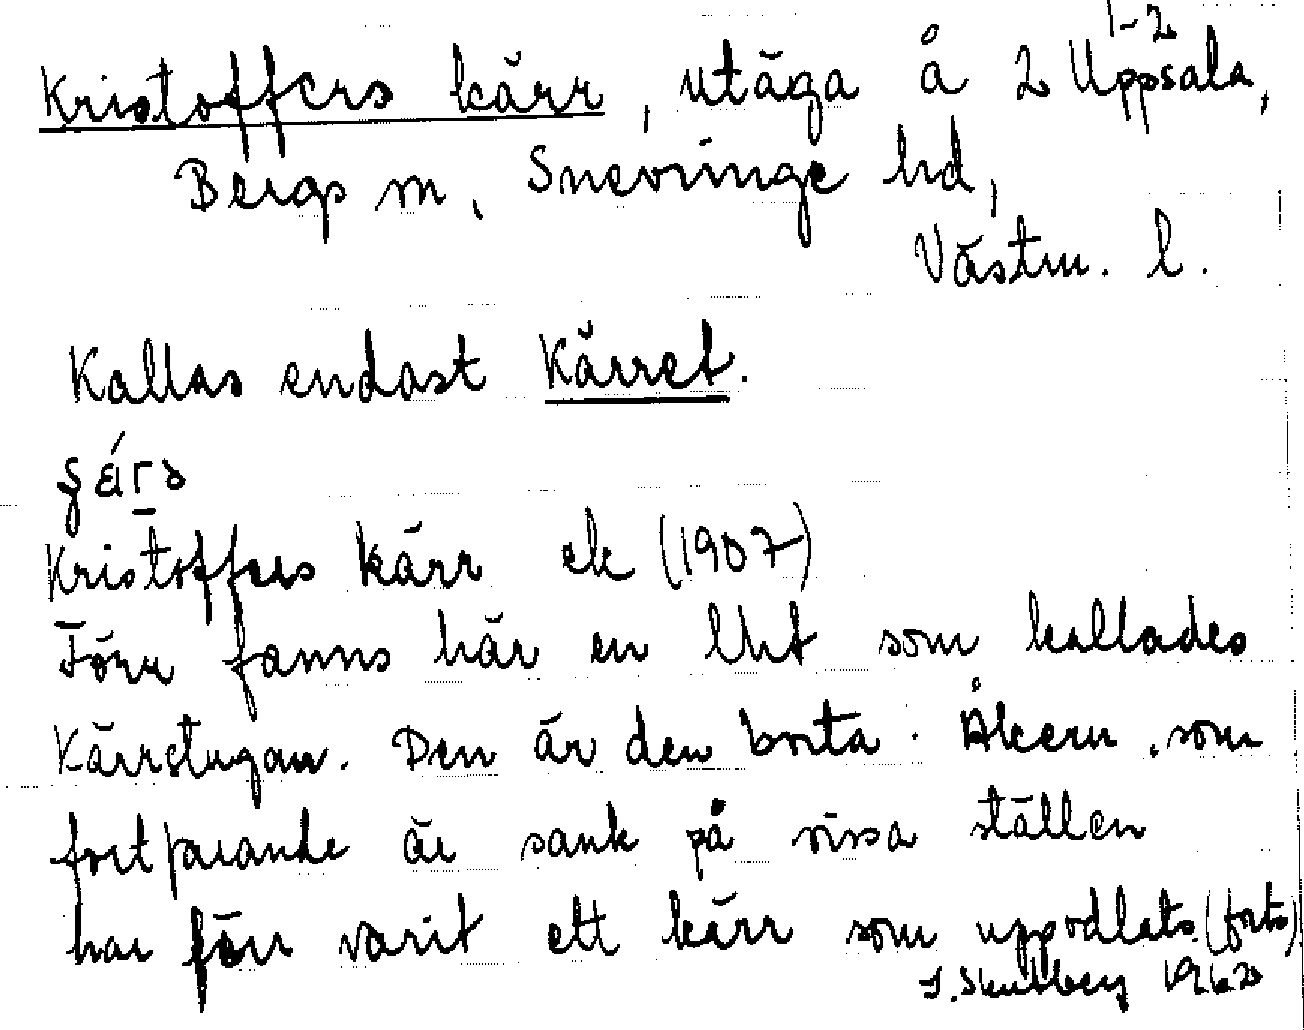 1-2
Kristoffers kärr, utäga å 2 Uppsala,
Bergs sn, Snevringe hd,
Västm. l.
Kallas endast Kärret.
Kristoffers kärr ek (1907)
Förr fanns här en lht som kallades
Kärrstugan. Den är den borta. Åkern, som
fortfarande är sank på vissa ställen
har förr varit ett kärr som uppodlats. (forts)
J. Skullberg 1962